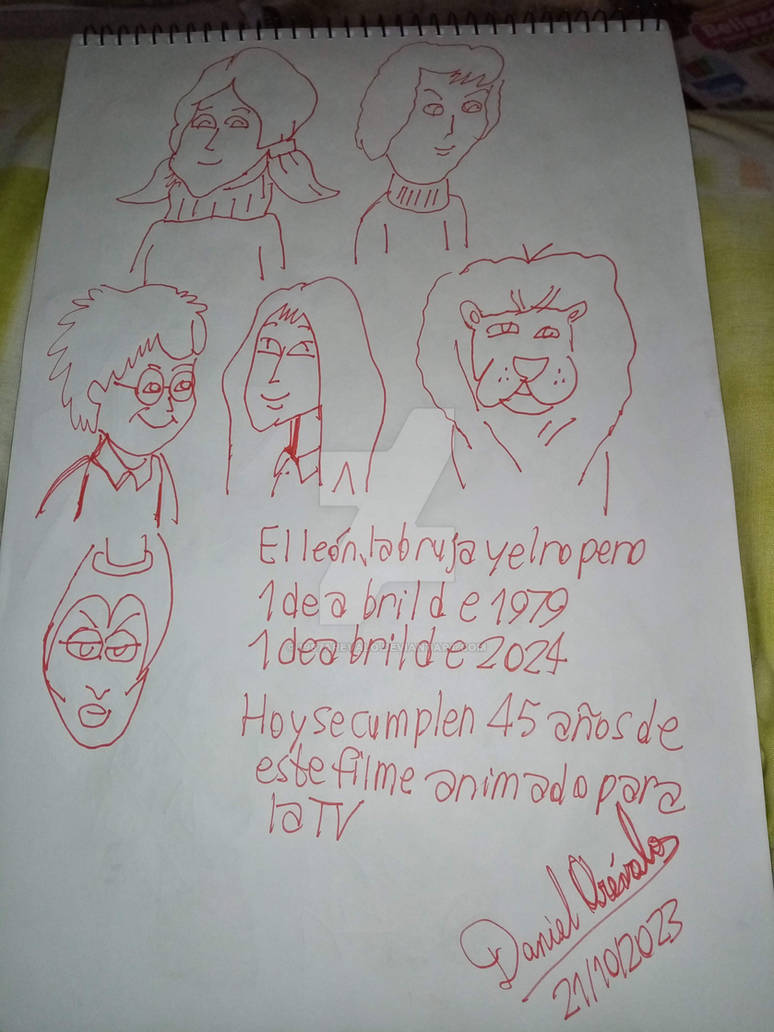 Belleza
El león, la bruja y el ropero
1 de abril de 1979
1 de abril de 2024
Hoy se cumplen 45 años de
este filme animado para
la TV
Daniel Arévalos
21/10/2023